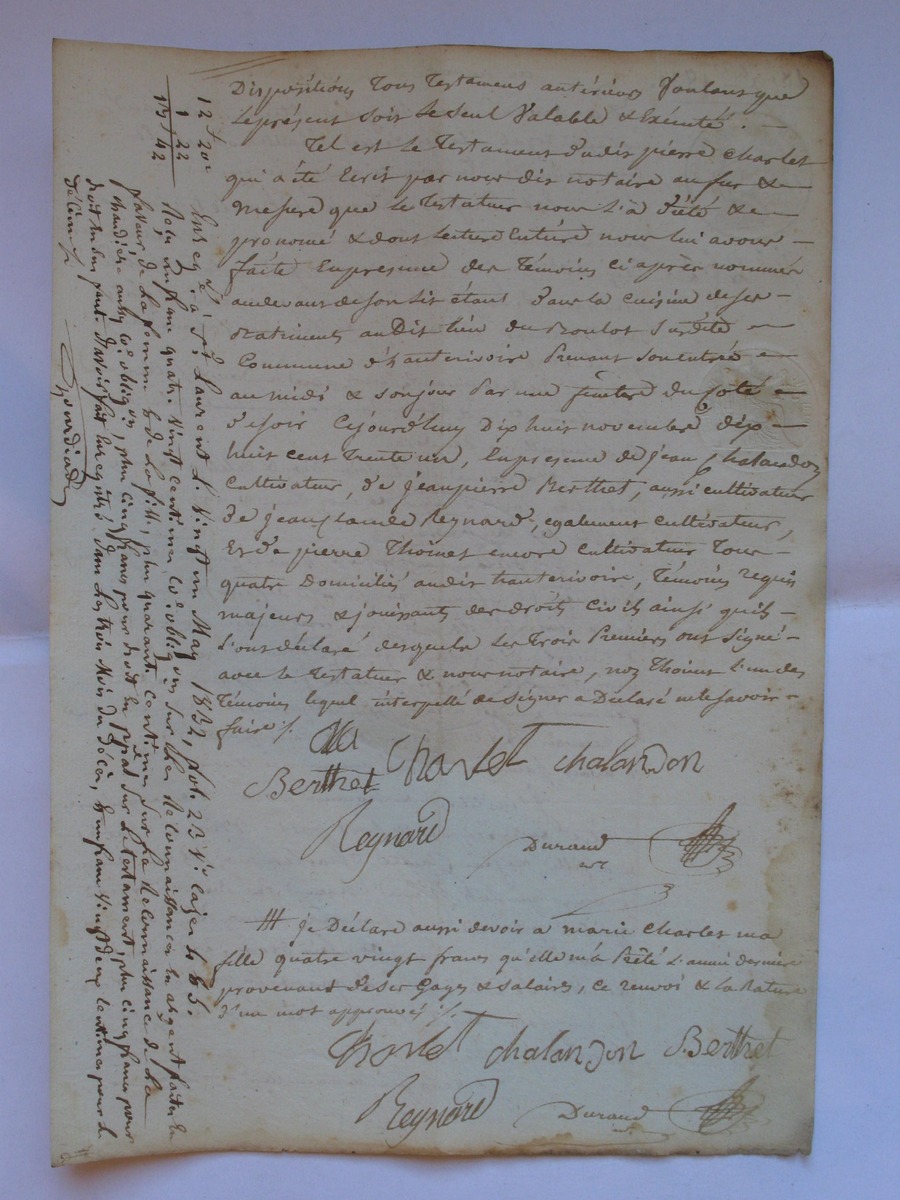 Dispositions Tous Testamens antérieurs Voulant que
le présent soit le seul Valable & Exécuté. —
Tel est le Testament dudit pierre Charlet
qui a été Ecrit par nous dit notaire au fur & —
Mesure que le Testateur nous l'a dicté & —
prononcé & dont lecture Entiére nous lui avons —
faite En presence des Témoins ci après nommés
au devant de son lit étant dans la cuisine de ses —
Batiments au Dit lieu du susdite —
Commune d'hauterivoire Prenant son entrée —
au midi & son jour Par une fenêtre du Coté —
de soir Cejourd'huy Dix huit novembre dix —
huit cent trente un, En presence de jean Chalandon
Cultivateur, de jean pierre Berthet, aussi cultivateur
de jean Claude Reynard, egalement cultivateur,
Et de pierre Thoinet encore Cultivateur Tous —
quatre Domiciliés audit hauterivoire, Témoins requis
majeurs & jouissants des droits Civils ainsi quils —
l'ont déclaré desquels les Trois Premiers ont signé —
avec le Testateur & nous notaire, non Thoinet l'un des
Témoins lequel interpellé de signer a Déclaré ne le savoir —
faire ./.
Berthet Charlet chalandon
Reynard Durand
nre
/// je Déclare aussi devoir a marie Charlet ma
fille quatre vingt francs qu'elle m'a Prêté l'année derniere
provenant de ses Gages & salaires, ce renvoi & la Rature
d'un mot approuvés ./.
Charlet chalandon Berthet
Reynard Durand
nre
12 f 20 c
1 22
13 f 42
Enreg. à St. Laurent le Vingt un May 1832, fol. 23 V. cases 4 & 5.
Reçu un franc quatre Vingt centimes co. oblig. sur les Reconnaissances en argent faites en
faveur de la femme & de la fille, plus quarante centimes sur la Reconnaissance de la
chaudiere aussi co. oblig., plus cinq francs pour droit en sur le testament, plus cinq francs pour
droit en sus pour l'avoir fait Enregistrer dans les trois Mois du Décès, & un franc Vingt deux centimes pour le
Décime ./.